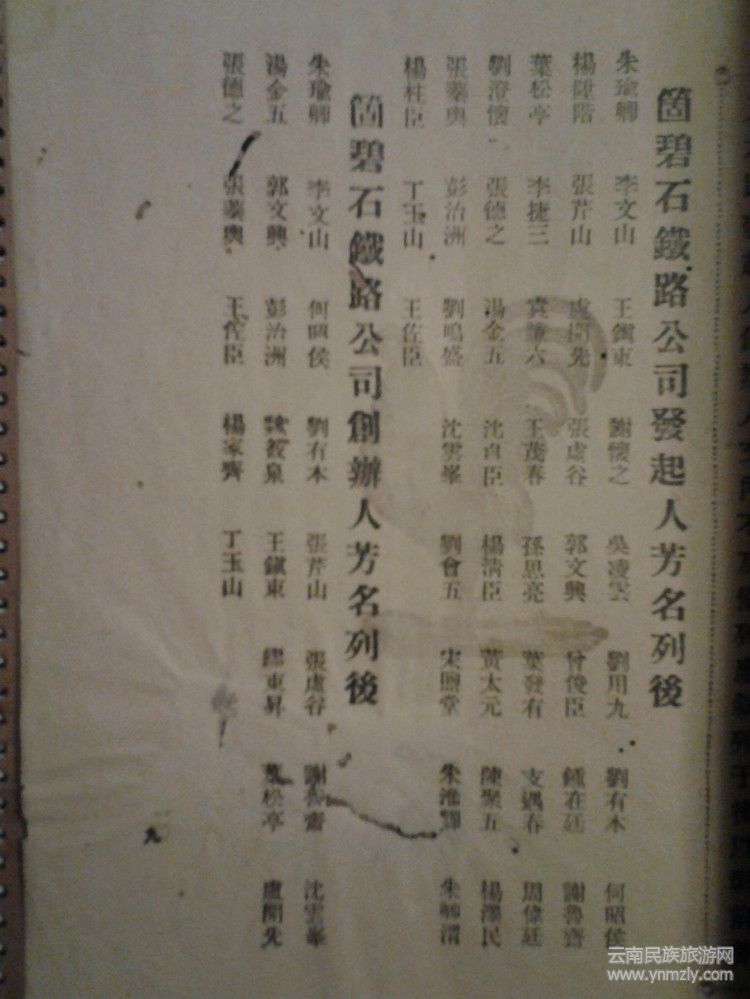 箇碧石鐵路公司發起人芳名列後
朱瑜卿 李文山 王鎭東 謝懷之 吳凌雲 劉用九 劉有本 何昭侯
楊陞階 張芹山 盧開先 張虛谷 郭文興 曾俊臣 鍾在廷 謝魯齋
葉松亭 李捷三 袁 六 王茂春 孫思亮 葉發有 支遇春 周偉廷
劉澄懷 張德之 湯金五 沈貞臣 楊清臣 黃太元 陳聚五 楊澤民
張蘂輿 彭治洲 劉鳴盛 沈雲峯 劉會五 宋 堂 朱 朱卿渭
楊柱臣 丁玉山 王佐臣
箇碧石鐵路公司創辦人芳名列後
朱瑜卿 李文山 何昭侯 劉有本 張芹山 張虛谷 謝魯齋 沈雲峯
湯金五 郭文興 彭治洲 泉 王鎭東 繆東昇 葉松亭 盧開先
張德之 張蘂輿 王佐臣 楊家齊 丁玉山
九
云南民族旅游网
www.ynmzly.com